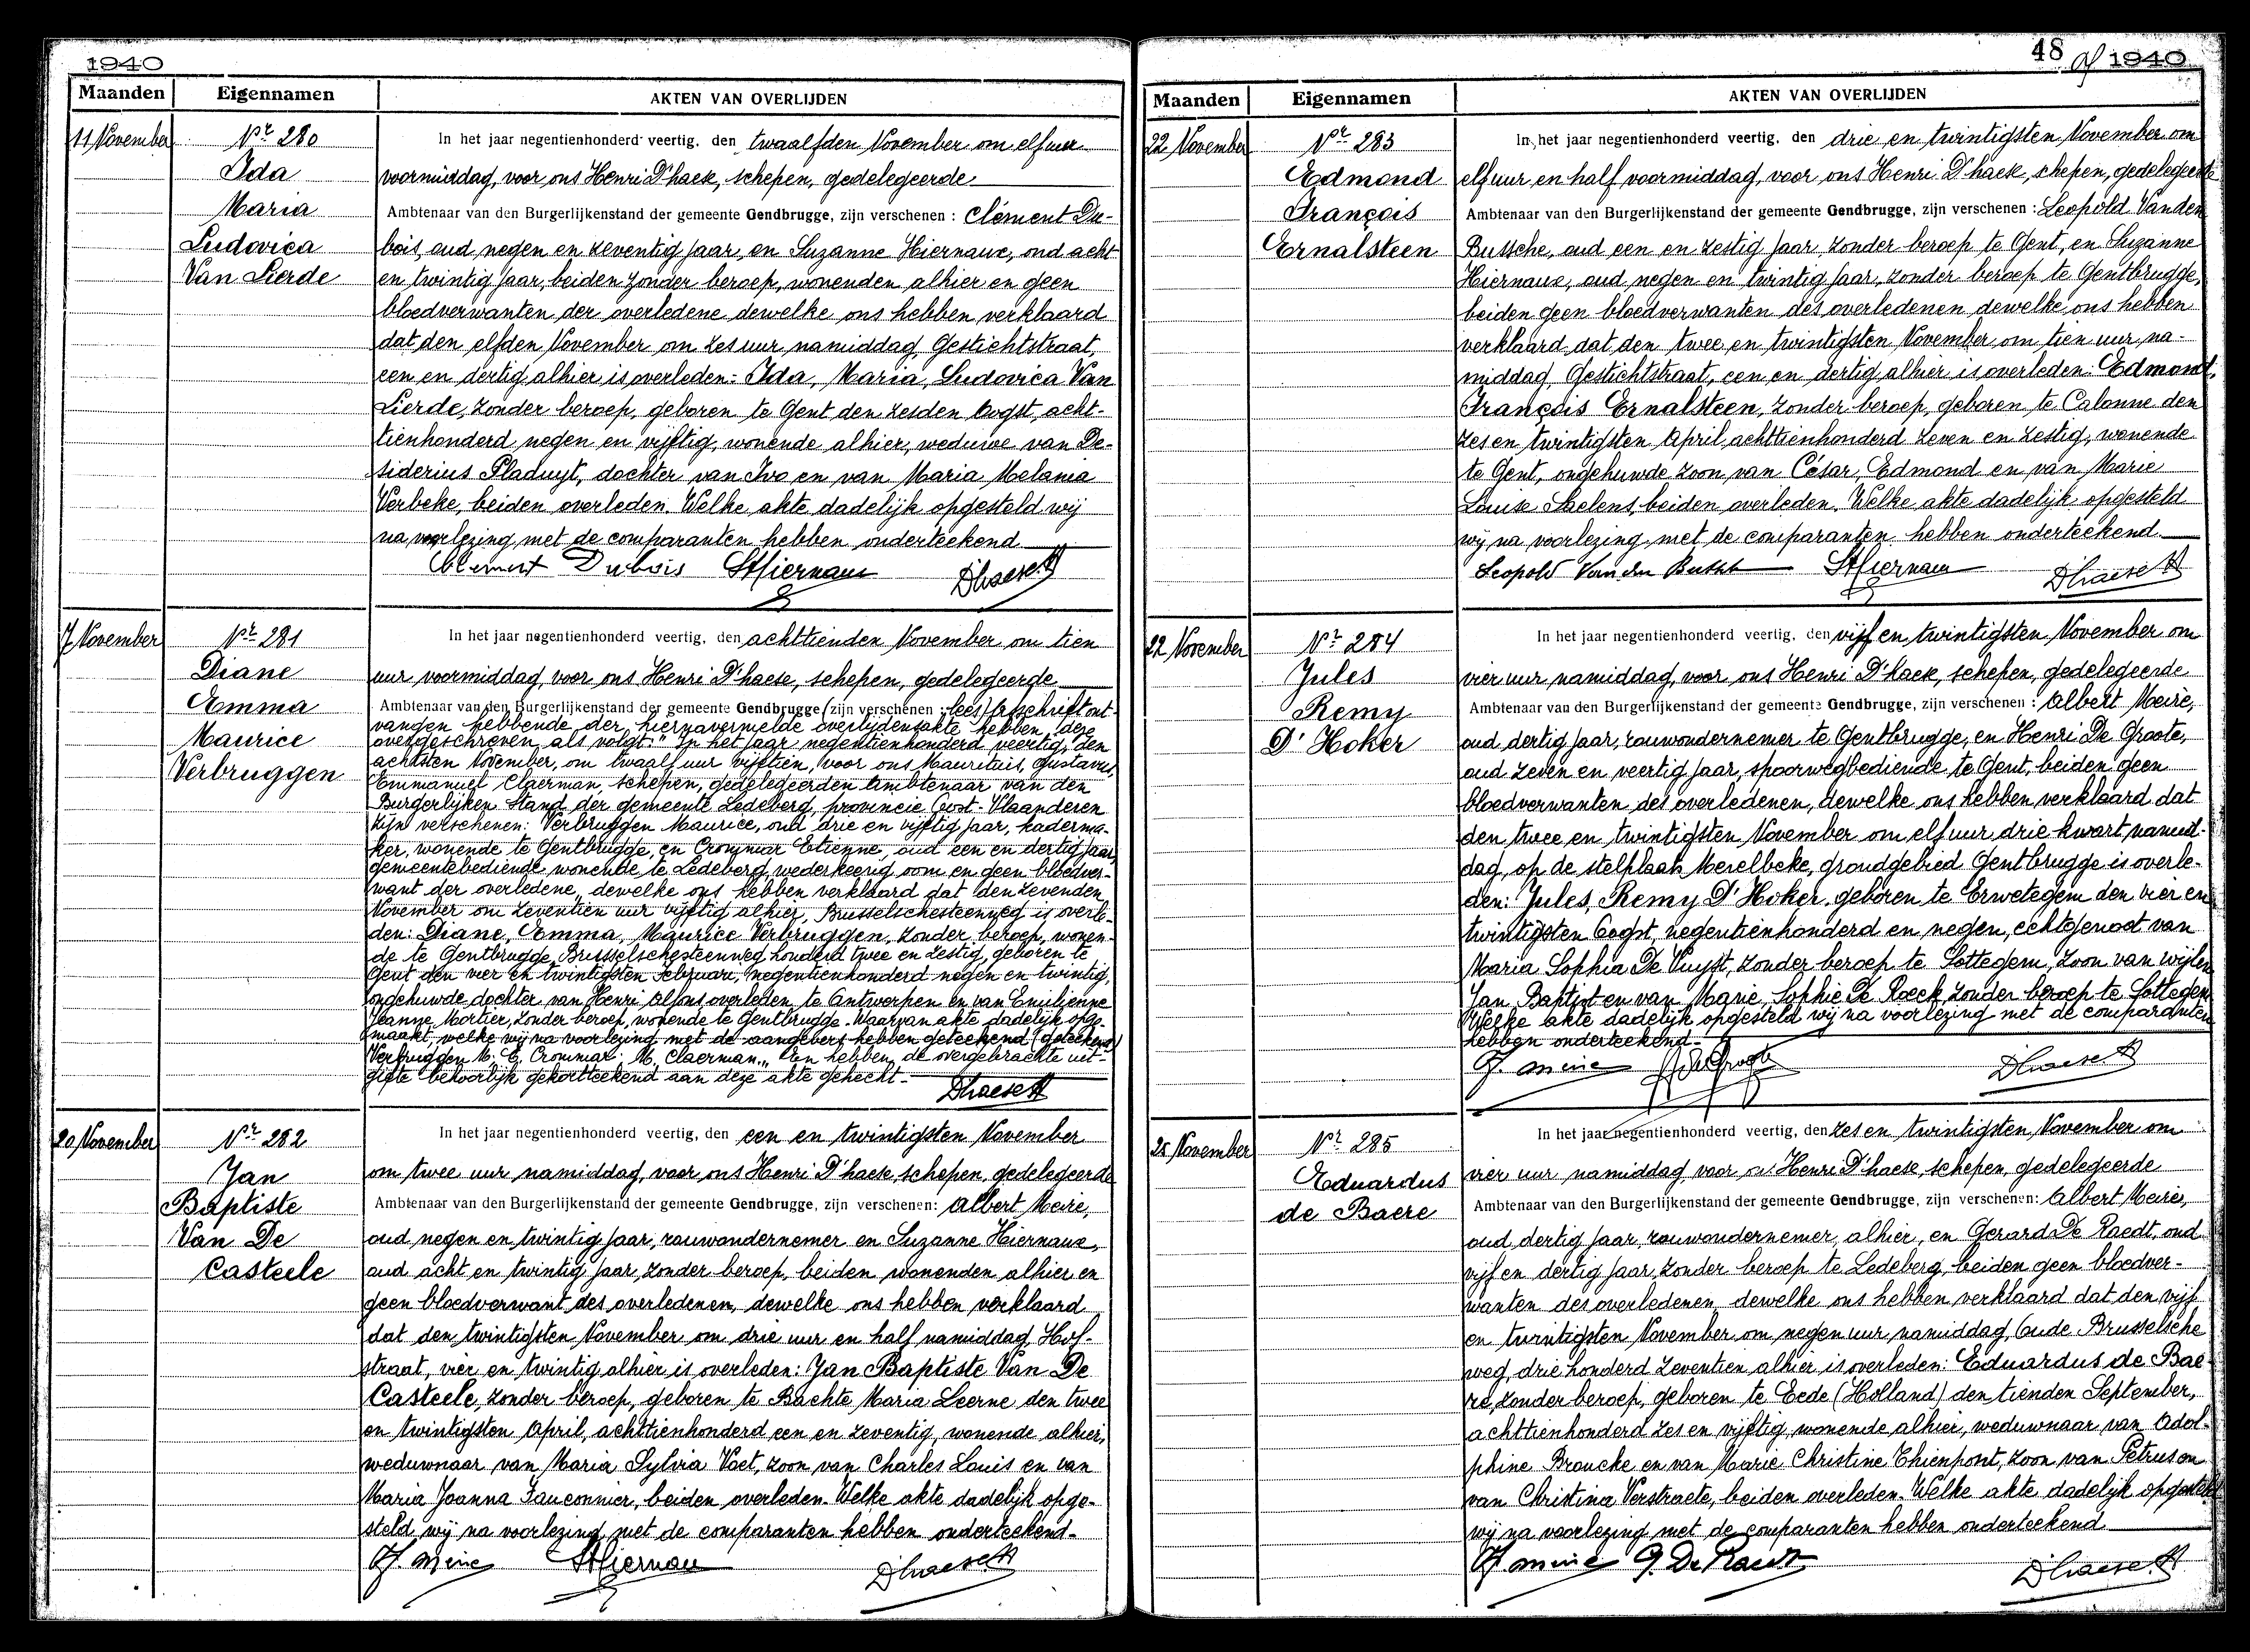 1940
Maanden Eigennamen AKTEN VAN OVERLIJDEN
11 November Nr 280
Ida
Maria
Ludovica
Van Lierde
In het jaar negentienhonderd veertig, den twaalfden November om elf uur
voormiddag, voor ons Henri D'haese, schepen, gedelegeerde
Ambtenaar van den Burgerlijkenstand der gemeente Gendbrugge, zijn verschenen : Clément Du-
bois, oud negen en zeventig jaar, en Suzanne Hiernaux, oud acht
en twintig jaar, beiden zonder beroep, wonenden alhier en geen
bloedverwanten der overledene dewelke ons hebben verklaard
dat den elfden November om zes uur namiddag, Gestichtstraat,
een en dertig alhier is overleden: Ida, Maria, Ludovica Van
Lierde, zonder beroep, geboren te Gent den zesden Oogst, acht-
tienhonderd negen en vijftig, wonende alhier, weduwe van De-
siderius Pladuyt, dochter van Ivo en van Maria Melania
Verbeke, beiden overleden. Welke akte dadelijk opgesteld wij
na voorlezing met de comparanten hebben onderteekend
Clement Dubois SHiernaux Dhaese H
17 November Nr 281
Diane
Emma
Maurice
Verbruggen
In het jaar negentienhonderd veertig, den achttienden November om tien
uur voormiddag, voor ons Henri D'haese, schepen, gedelegeerde
Ambtenaar van den Burgerlijkenstand der gemeente Gendbrugge (zijn verschenen : lees) afschrift ont-
vangen hebbende der hiernavermelde overlijdensakte hebben deze
overgeschreven als volgt: "In het jaar negentienhonderd veertig, den
achtsten November, om twaalf uur vijftien, voor ons Mauritius, Gustavus,
Emmanuel Claerman, schepen, gedelegeerden Ambtenaar van den
Burgerlijken Stand der gemeente Ledeberg, provincie Oost-Vlaanderen
zijn verschenen: Verbruggen Maurice, oud drie en vijftig jaar, kaderma-
ker, wonende te Gentbrugge, en Crommar Etienne, oud een en dertig jaar,
gemeentebediende wonende te Ledeberg, wederkeerig oom en geen bloedver-
want der overledene, dewelke ons hebben verklaard dat den zevenden
November om zeventien uur vijftig alhier, Brusselschesteenweg is overle-
den: Diane, Emma, Maurice Verbruggen, zonder beroep, wonen-
de te Gentbrugge, Brusselschesteenweg honderd twee en zestig, geboren te
Gent den vier en twintigsten Februari, negentienhonderd negen en twintig,
ongehuwde dochter van Henri Alfons overleden te Antwerpen en van Emilienne
Jeanne Mortier, zonder beroep, wonende te Gentbrugge. Waarvan akte dadelijk opge-
maakt, welke wij na voorlezing met de aangevers hebben geteekend (geteekend)
Verbruggen M. E. Crommar. M. Claerman.„ En hebben de overgebrachte uit-
gifte behoorlijk gekortteekend aan deze akte gehecht.
Dhaese H
20 November Nr 282
Jan
Baptiste
Van De
Casteele
In het jaar negentienhonderd veertig, den een en twintigsten November
om twee uur namiddag, voor ons Henri D'haese, schepen, gedelegeerde
Ambtenaar van den Burgerlijkenstand der gemeente Gendbrugge, zijn verschenen: Albert Meire,
oud negen en twintig jaar, rouwondernemer en Suzanne Hiernaux,
oud acht en twintig jaar, zonder beroep, beiden wonenden alhier en
geen bloedverwant des overledenen, dewelke ons hebben verklaard
dat den twintigsten November om drie uur en half namiddag Hof-
straat, vier en twintig alhier is overleden: Jan Baptiste Van De
Casteele, zonder beroep, geboren te Bachte Maria Leerne den twee
en twintigsten April, achttienhonderd een en zeventig, wonende alhier,
weduwnaar van Maria Sylvia Voet, zoon van Charles Louis en van
Maria Joanna Fauconnier, beiden overleden. Welke akte dadelijk opge-
steld wij na voorlezing met de comparanten hebben onderteekend.
A. Meire SHiernau Dhaese H
48 1940
Maanden Eigennamen AKTEN VAN OVERLIJDEN
22 November Nr 283
Edmond
François
Ernalsteen
In het jaar negentienhonderd veertig, den drie en twintigsten November om
elf uur en half voormiddag, voor ons Henri D'haese, schepen, gedelegeerde
Ambtenaar van den Burgerlijkenstand der gemeente Gendbrugge, zijn verschenen : Leopold Vanden
Bussche, oud een en zestig jaar, zonder beroep te Gent, en Suzanne
Hiernaux, oud negen en twintig jaar, zonder beroep te Gentbrugge,
beiden geen bloedverwanten des overledenen dewelke ons hebben
verklaard dat den twee en twintigsten November, om tien uur na-
middag, Gestichtstraat, een en dertig, alhier is overleden: Edmond,
François Ernalsteen, zonder beroep, geboren te Calonne den
zes en twintigsten April, achttienhonderd zeven en zestig, wonende
te Gent, ongehuwde zoon van César, Edmond en van Marie
Louise Saelens, beiden overleden. Welke akte dadelijk opgesteld
wij na voorlezing met de comparanten hebben onderteekend.
Leopold Vanden Bussche SHiernau Dhaese H
22 November Nr 284
Jules
Remy
D'Hoker
In het jaar negentienhonderd veertig, den vijf en twintigsten November om
vier uur namiddag, voor ons Henri D'haese, schepen, gedelegeerde
Ambtenaar van den Burgerlijkenstand der gemeente Gendbrugge, zijn verschenen : Albert Meire,
oud dertig jaar, rouwondernemer te Gentbrugge, en Henri De Groote,
oud zeven en veertig jaar, spoorwegbediende te Gent, beiden geen
bloedverwanten des overledenen, dewelke ons hebben verklaard dat
den twee en twintigsten November om elf uur drie kwart namid-
dag, op de stelplaats Merelbeke, grondgebied Gentbrugge is overle-
den: Jules, Remy D'Hoker, geboren te Erwetegem den vier en
twintigsten Oogst, negentienhonderd en negen, echtgenoot van
Maria Sophia De Vuyst, zonder beroep te Sottegem, zoon van wijlen
Jan Baptist en van Marie, Sophie De Roeck zonder beroep te Sottegem
Welke akte dadelijk opgesteld wij na voorlezing met de comparanten
hebben onderteekend.
A. Meire Dhaese H
25 November Nr 285
Eduardus
de Baere
In het jaar negentienhonderd veertig, den zes en twintigsten November om
vier uur namiddag voor ons Henri D'haese, schepen, gedelegeerde
Ambtenaar van den Burgerlijkenstand der gemeente Gendbrugge, zijn verschenen: Albert Meire,
oud dertig jaar, rouwondernemer, alhier, en Gerard De Raedt, oud
vijf en dertig jaar, zonder beroep te Ledeberg, beiden geen bloedver-
wanten des overledenen dewelke ons hebben verklaard dat den vijf
en twintigsten November om negen uur namiddag, Oude Brusselsche
weg, drie honderd zeventien alhier is overleden: Eduardus de Bae-
re, zonder beroep, geboren te Eede (Holland) den tienden September,
achttienhonderd zes en vijftig, wonende alhier, weduwnaar van Adol-
phine Broucke en van Marie Christine Thienpont, zoon van Petrus en
van Christina Verstraete, beiden overleden. Welke akte dadelijk opgesteld
wij na voorlezing met de comparanten hebben onderteekend
A. Meire G. De Raedt Dhaese H